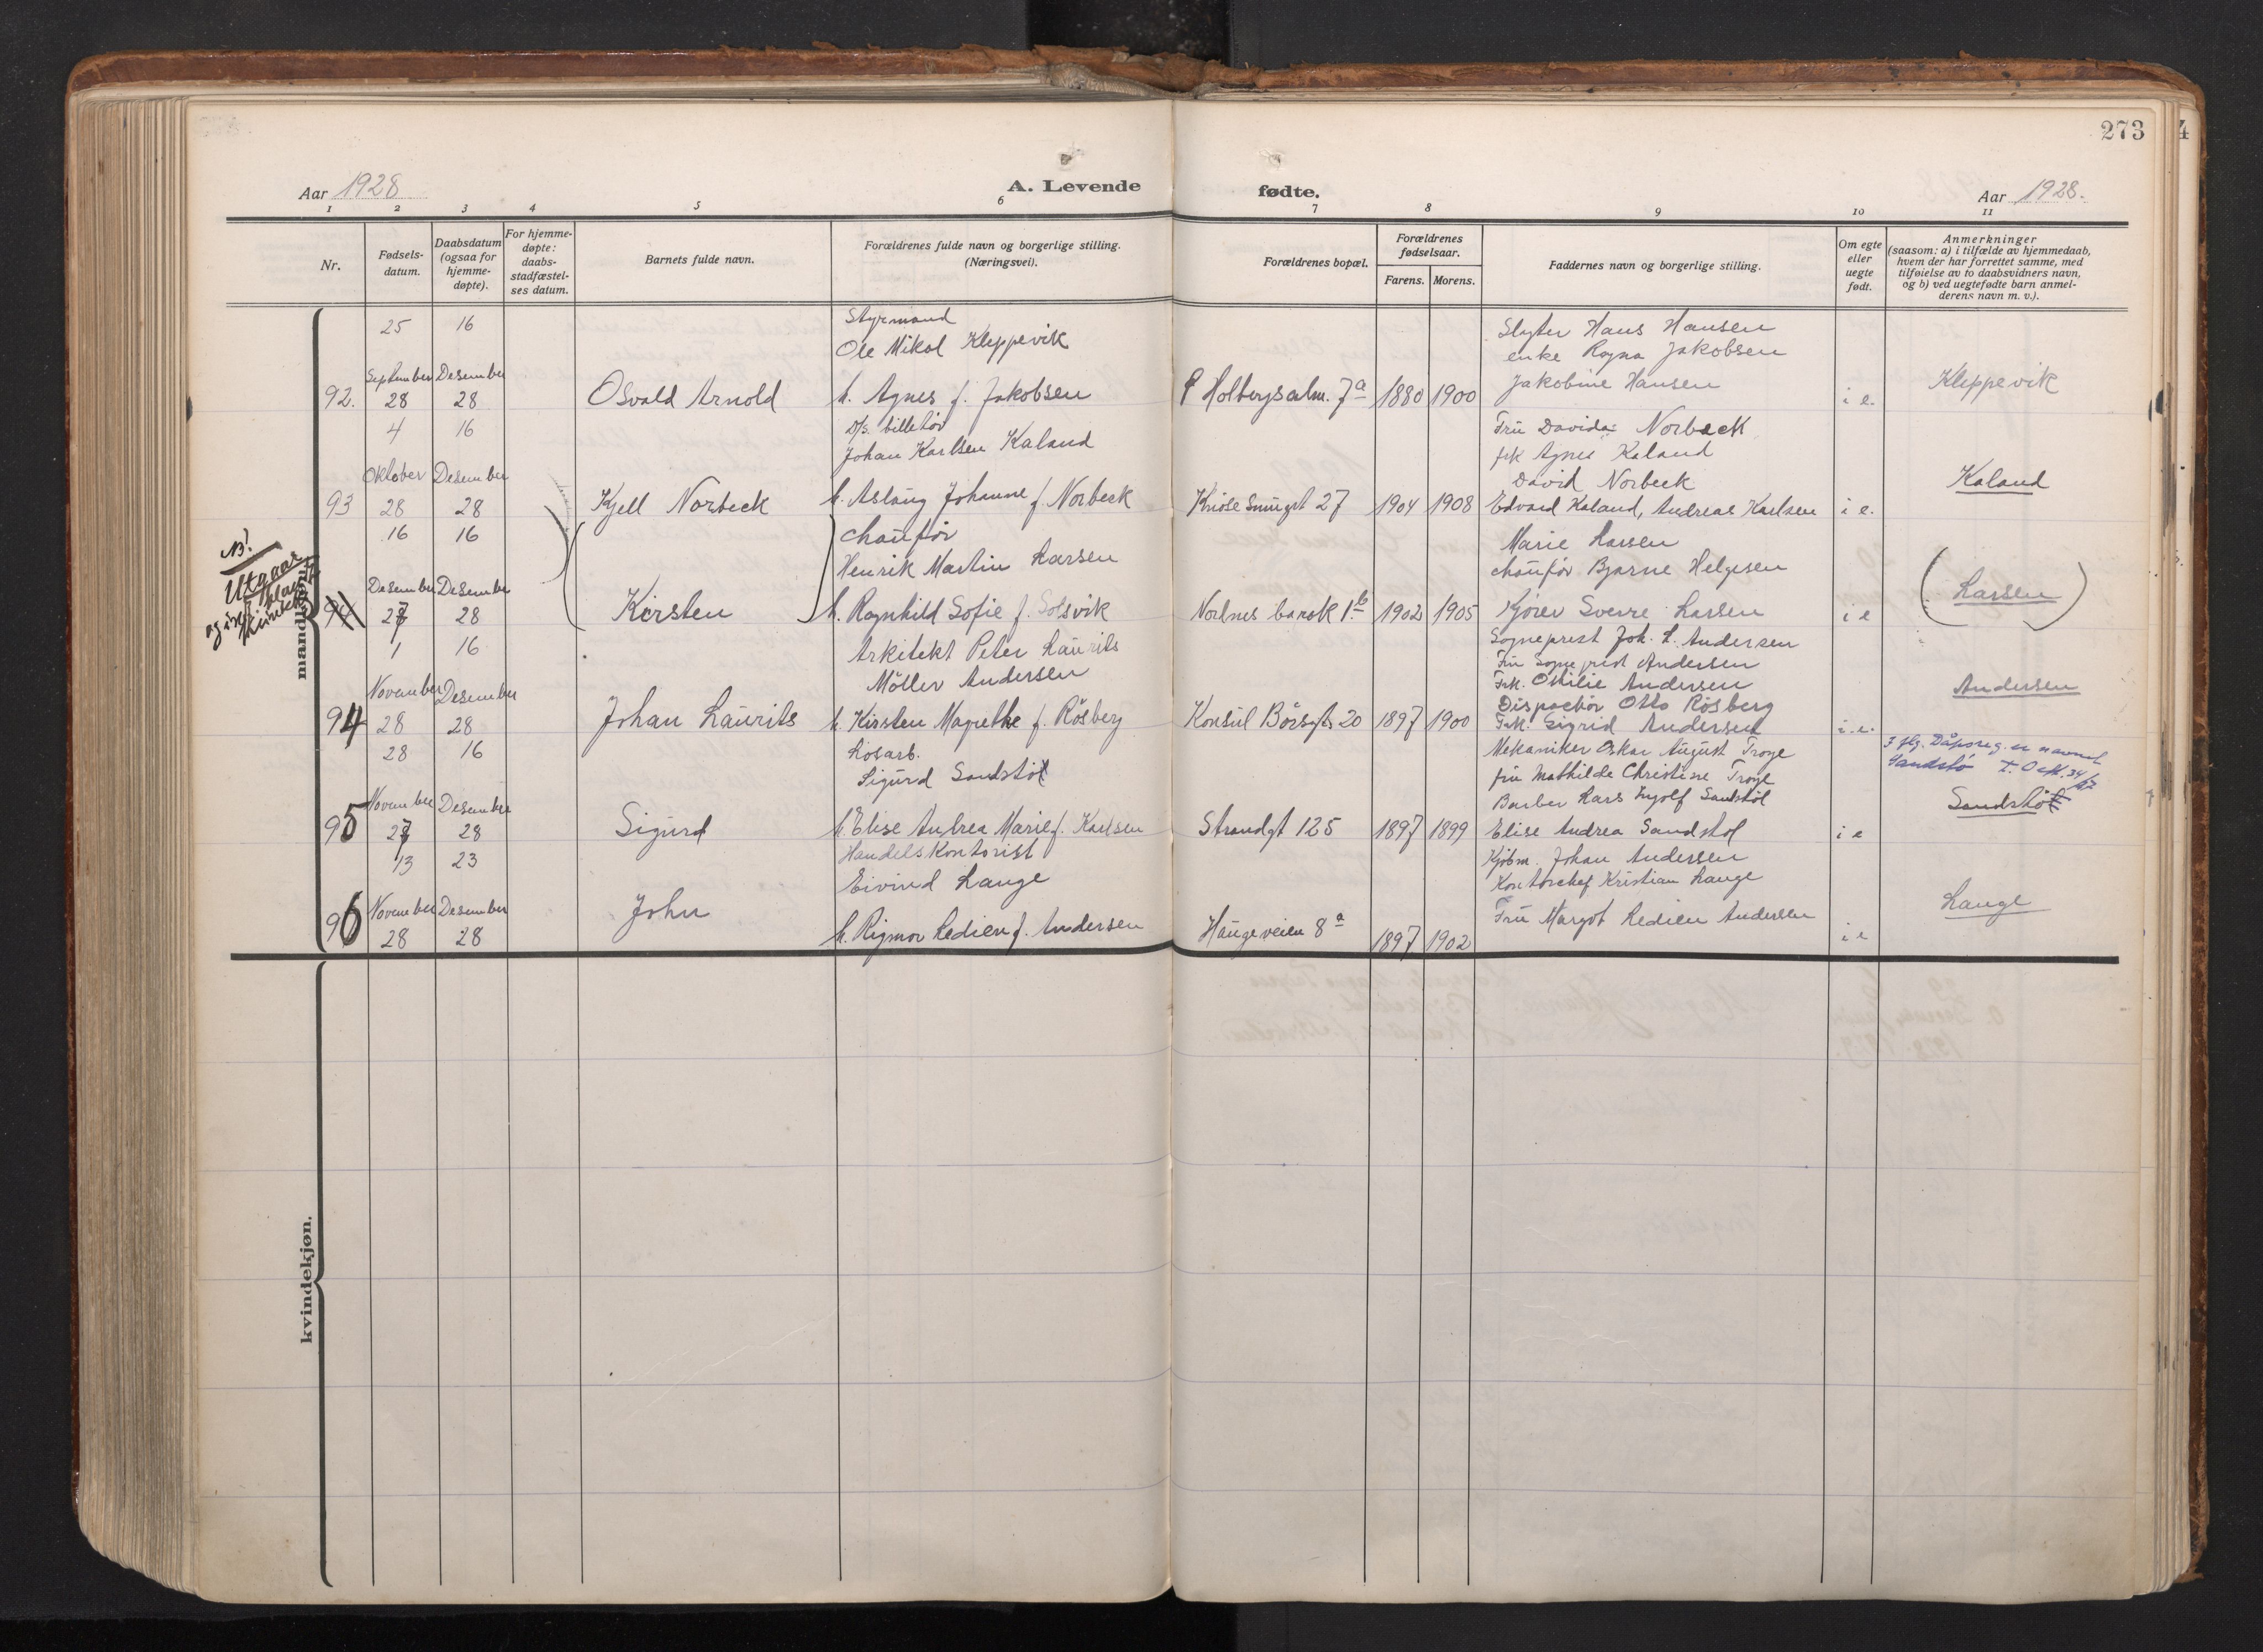 273
4
Aar 1928
A. Levende
fødte.
Aar 1928.
1 2 3 4 5 6 7 8 9 10 11
Nr.
Fødsels-
datum.
Daabsdatum
(ogsaa for
hjemme-
døpte).
For hjemme-
døpte:
daabs-
stadfæstel-
ses datum.
Barnets fulde navn.
Forældrenes fulde navn og borgerlige stilling.
(Næringsvei).
Forældrenes bopæl.
Forældrenes
fødselsaar.
Farens. Morens.
Faddernes navn og borgerlige stilling.
Om egte
eller
uegte
født.
Anmerkninger
(saasom: a) i tilfælde av hjemmedaab,
hvem der har forrettet samme, med
tilføielse av to daabsvidners navn,
og b) ved uegtefødte barn anmel-
derens navn m. v.).
mandkjøn.
25 16 Styrmand
Ole Mikal Kleppevik
Slagter Hans Hansen
enke Ragna Jakobsen
92. September 28 Desember 28 Osvald Arnold h. Agnes f. Jakobsen Holbergsalm. 7a 1880 1900 Jakobine Hansen i e. Kleppevik
4 16 D/s. billetør
Johan Karlsen Kaland
Fru Davida Norbeck
frk Agnes Kaland
David Norbeck
93 Oktober 28 Desember 28 Kjell Norbeck h. Aslaug Johanne f. Norbeck Knøsesmugt 27 1904 1908 Edvard Kaland, Andreas Karlsen i e. Kaland
NB!
Utgaar
16 16 Chauffør
Henrik Martin Larsen
Marie Larsen
chauffør Bjarne Helgesen
94 Desember 27 Desember 28 Kirsten h. Ragnhild Sofie f. Solsvik Nordnes barak 1b 1902 1905 Kjører Sverre Larsen i e (Larsen)
1 16 Arkitekt Peter Laurits
Møller Andersen
Sogneprest Joh. L. Andersen
Fru Sogneprest Andersen
Frk. Othilie Andersen
Dispachør Otto Røsberg
94 November 28 Desember 28 Johan Laurits h. Kirsten Magrethe f. Røsberg Konsul Børsgt. 20 1897 1900 Frk. Sigrid Andersen i. e. Andersen
28 16 Løsarb.
Sigurd Sandstøl
Mekaniker Oskar August Troye
fru Mathilde Christine Troye
Barber Lars Ingolf Sandstøl
flg. Dåpsreg. er navnet
Sandstø
95 November 27 Desember 28 Sigurd h. Elise Andrea Marie f. Karlsen Strandgt 125 1897 1899 Elise Andrea Sandstøl i e Sandstøl
13 23 Handelskontorist
Eivind Lange
Kjøbm. Johan Andersen
Kontorchef Kristian Lange
96 November 28 Desember 28 John h. Rigmor Redien f. Andersen Haugeveien 8a 1897 1902 Fru Margot Redien Andersen i e Lange
kvindekjøn.